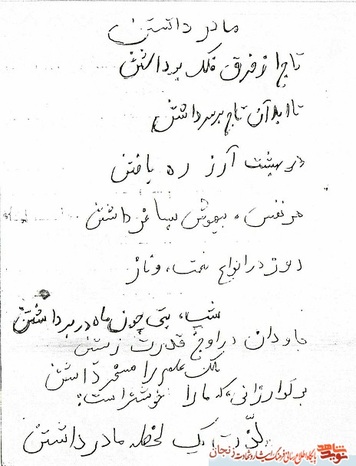 مادر داشتن
تاج از فرق فلک برداشتن
تا ابد آن تاج بر سر داشتن
در بهشت آرزو ره یافتن
هر نفس شهدی به ساغر داشتن
روز در انواع نعمت و ناز
شب بتی چون ماه در بر داشتن
جاودان در اوج قدرت زیستن
ملک عالم را مسخر داشتن
بر تو ارزانی که ما را خوشتر است
لذت یک لحظه مادر داشتن
نوید شاهد
پایگاه اطلاع رسانی فرهنگ ایثار و شهادت زنجان